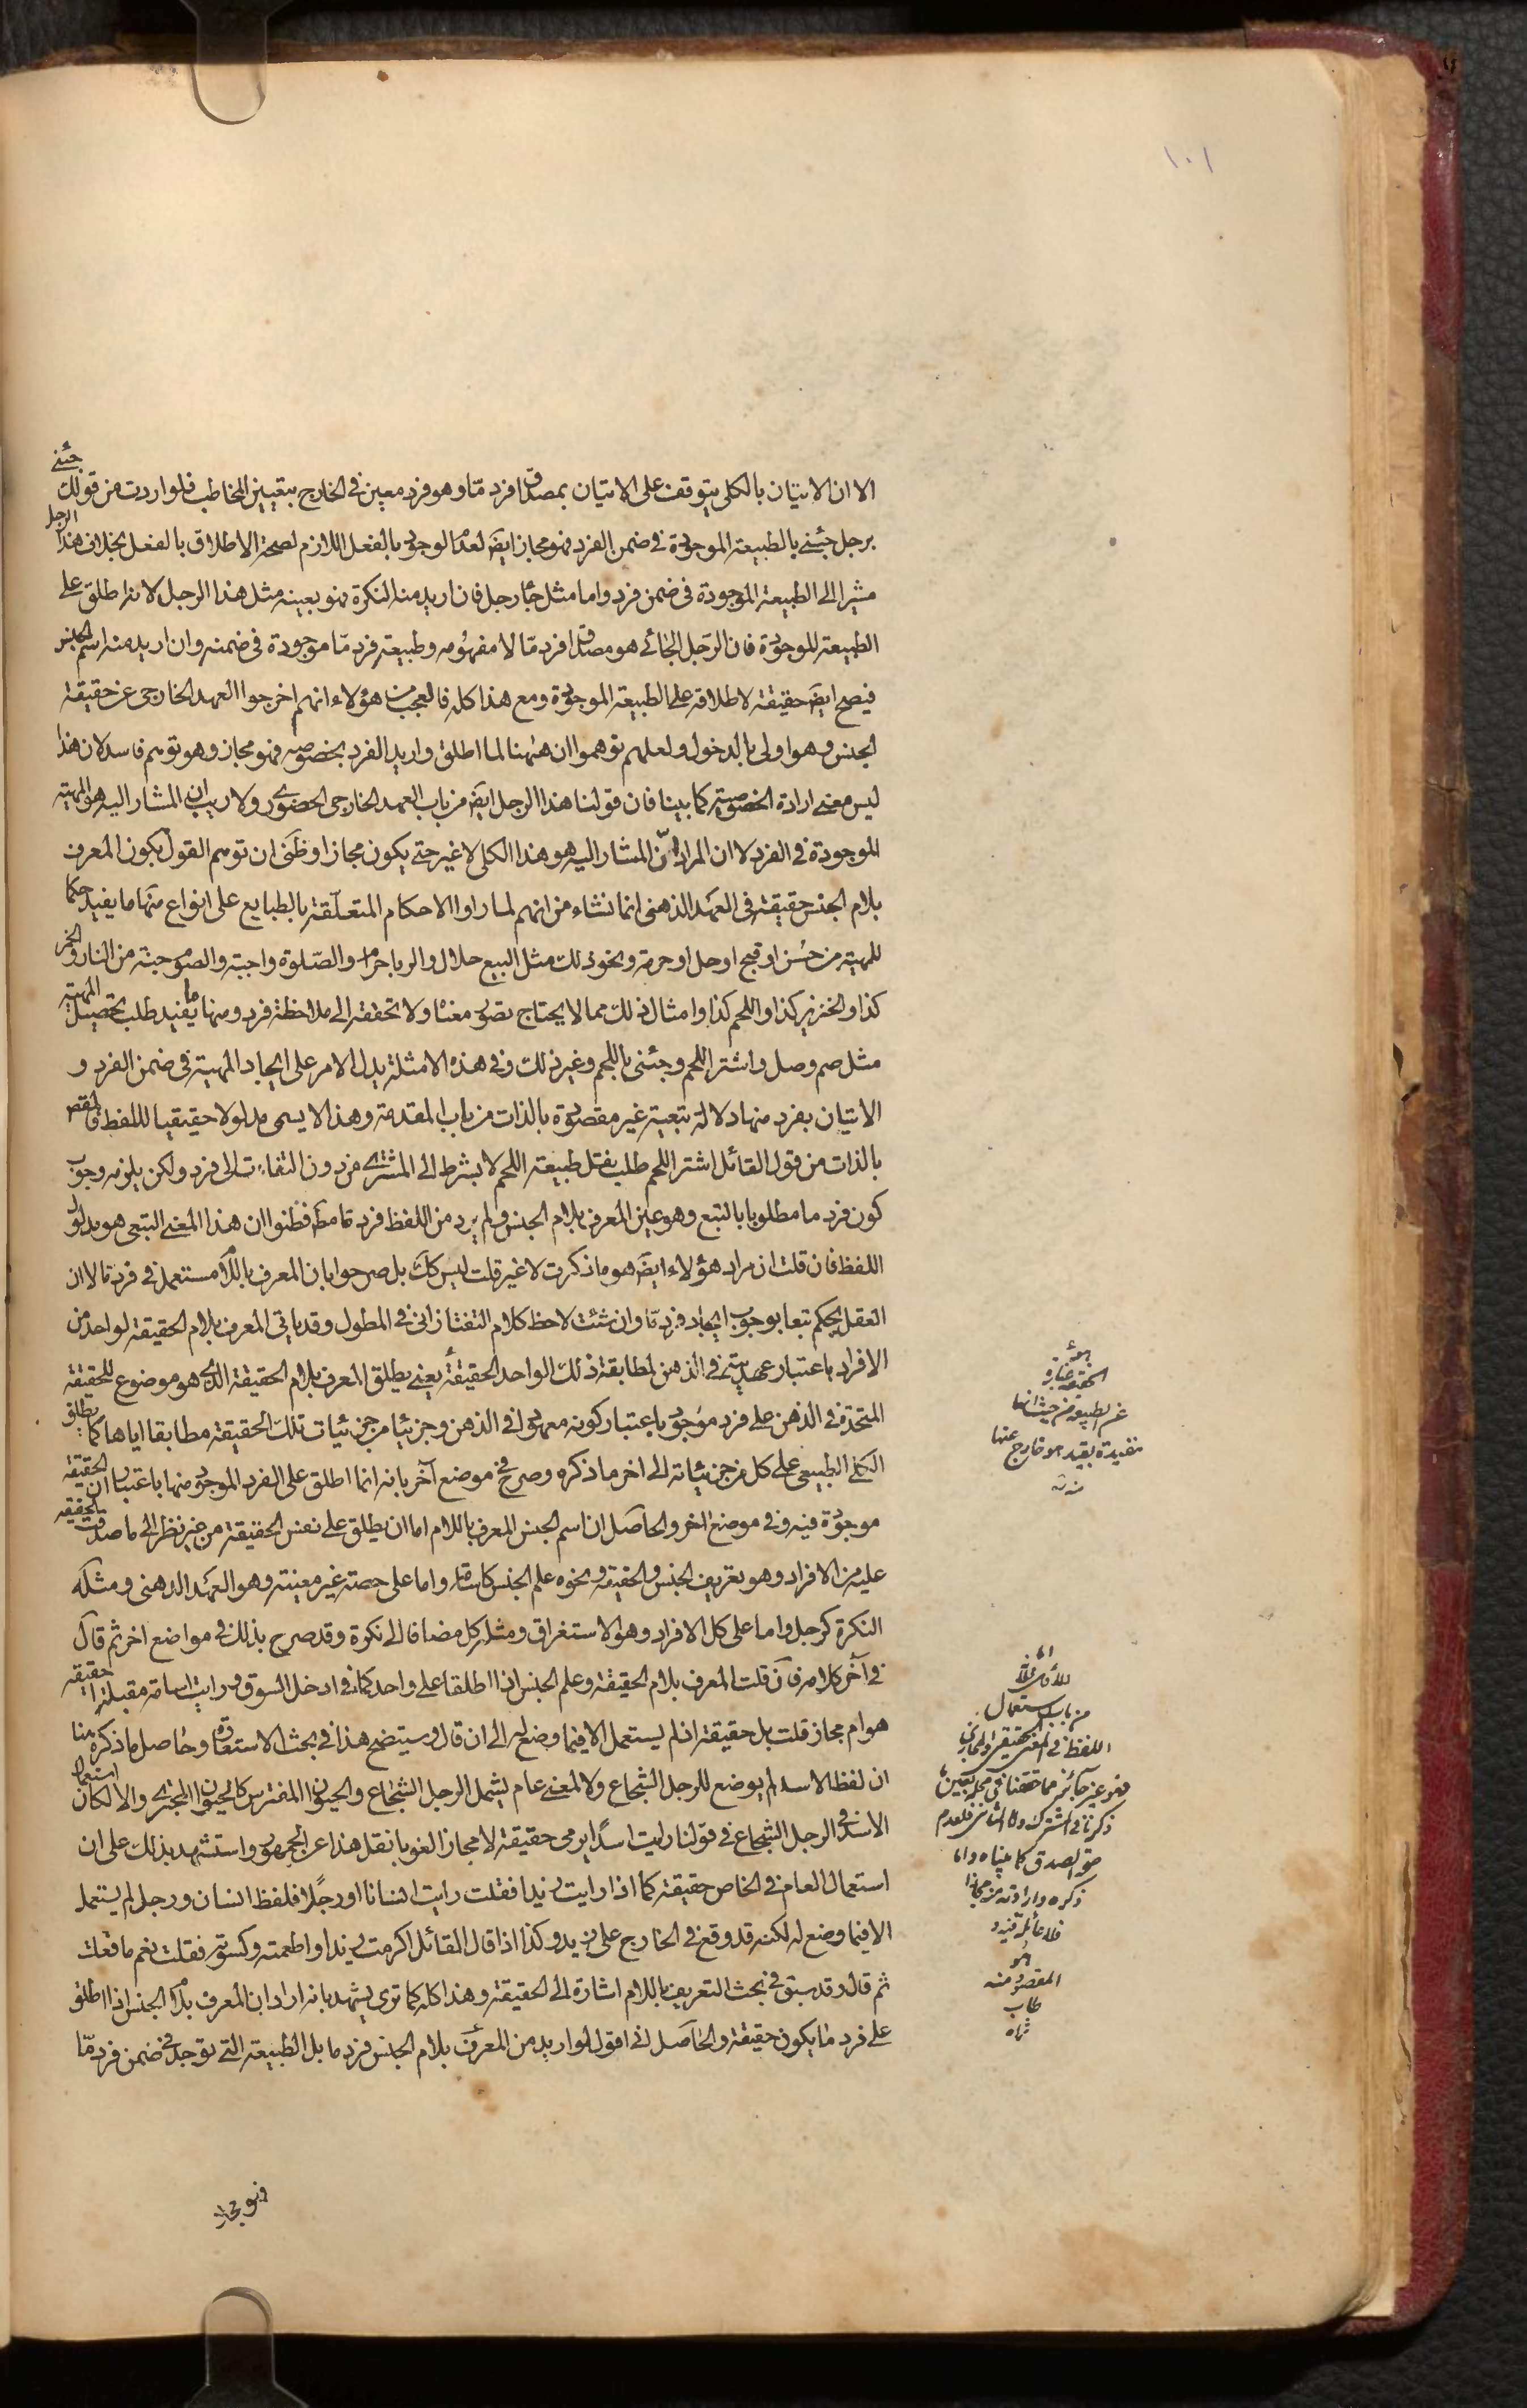 ١٠١
الا ان الاتيان بالكلى يتوقف على الاتيان بمصداق فرد مّا وهو فرد معين فى الخارج بتعيين المخاطب فلو اردت من قولك جئنى
برجل جئنى بالطبيعة الموجودة فى ضمن الفرد فهو مجاز ايضَ لعدم الوجود بالفعل اللازم لصحة الاطلاق بالفعل بخلاف هذا الرجل
مشيرا الى الطبيعة الموجودة فى ضمن فرد واما مثل جاء رجل فان اريد منه النكرة فهو بعينه مثل هذا الرجل لانه اطلق على
الطبيعة الموجودة فان الرّجل الجائى هو مصداق فرد مّا لا مفهومه وطبيعة فرد مّا موجودة فى ضمنه وان اريد منه اسم الجنس
فيصح ايضَ حقيقة لاطلاقه على الطبيعة الموجودة ومع هذا كله فالعجب من هؤلاء انهم اخرجوا العهد الخارجى عن حقيقة
الجنس وهو اولى بالدخول ولعلهم توهموا ان هيهنا لما اطلق واريد الفرد بخصوصه فهو مجاز وهو توهم فاسد لان هذا
ليس معنى ارادة الخصوصية كما بينا فان قولنا هذا الرجل ايضَ من باب العهد الخارجى الحضورى ولا ريب ان المشار اليه هو المهية
الموجودة فى الفرد لا ان المراد انّ المشار اليه هو هذا الكلى لا غير حتى يكون مجازا وظنى ان توهم القول بكون المعرف
بلام الجنس حقيقة فى العهد الذهنى انما نشاء من انهم لما راوا الاحكام المتعلّقة بالطبايع على انواع منها ما يفيد حكما
للمهية من حسن او قبح او حل او حرمة ونحو ذلك مثل البيع حلال والربا حرام والصّلوة واجبة والصوم جنة من النار والخمر
كذا والخنزير كذا واللحم كذا وامثال ذلك مما لا يحتاج تصور معناه ولا تحققه الى ملاحظة فرد ومنها ما يفيد طلب تحصيل المهية
مثل صم وصل واشتر اللحم وجئنى باللحم وغير ذلك وفى هذه الامثلة يدل الامر على ايجاد المهية فى ضمن الفرد و
الاتيان بفرد منها دلالة تبعية غير مقصودة بالذات من باب المقدمة وهذا لا يسمى مدلولا حقيقيا للفظ فالمقصود
بالذات من قول القائل اشتر اللحم طلب نقل طبيعة اللحم لا بشرط الى المشترى من دون التفات الى فرد ولكن يلزمه وجوب
كون فرد ما مطلوبا بالتبع وهو عين المعرف بلام الجنس ولم يرد من اللفظ فرد ما قط فظنوا ان هذا المعنى التبعى هو مدلول
اللفظ فان قلت ان مراد هؤلاء ايضَ هو ما ذكرت لا غير قلت ليس كك بل صرحوا بان المعرف باللام مستعمل فى فرد ما لا ان
العقل يحكم تبعا بوجوب ايجاد فرد مّا وان شئت لاحظ كلام التفتازانى فى المطول وقد ياتى المعرف بلام الحقيقة لواحد من
الافراد باعتبار عهديته فى الذهن لمطابقة ذلك الواحد الحقيقة يعنى يطلق المعرف بلام الحقيقة الذى هو موضوع للحقيقة
المتحدة فى الذهن على فرد موجود باعتبار كونه معهودا فى الذهن وجزئيا من جزئيات تلك الحقيقة مطابقا اياها كما يطلق
الكلى الطبيعى على كل من جزئياته الى اخر ما ذكره وصرح فى موضع آخر بانه انما اطلق على الفرد الموجود منها باعتبار ان الحقيقة
موجودة فيه وفى موضع اخر والحاصل ان اسم الجنس المعرف باللام اما ان يطلق على نفس الحقيقة من غير نظر الى ما صدقت الحقيقة
عليه من الافراد وهو تعريف الجنس والحقيقة ونحوه علم الجنس كاسامة واما على حصة غير معينة وهو العهد الذهنى ومثله
النكرة كرجل واما على كل الافراد وهو الاستغراق ومثله كل مضافا الى نكرة وقد صرح بذلك فى مواضع اخر ثم قال
فى آخر كلامه فان قلت المعرف بلام الحقيقة وعلم الجنس اذا اطلقا على واحد كما فى ادخل السوق ورايت اسامة مقبلة احقيقة
هو ام مجاز قلت بل حقيقة اذ لم يستعمل الا فيما وضع له الى ان قال وسيتضح هذا فى بحث الاستعارة وحاصل ما ذكره هنا
ان لفظ الاسد لم يوضع للرجل الشجاع ولا لمعنى عام يشمل الرجل الشجاع والحيوان المفترس كالحيوان المجترى والا لكان استعمال
الاسد فى الرجل الشجاع فى قولنا رايت اسدا يرمى حقيقة لا مجازا لغويا نقل هذا عن الجمهور واستشهد بذلك على ان
استعمال العام فى الخاص حقيقة كما اذا رايت زيدا فقلت رايت انسانا او رجلا فلفظ انسان ورجل لم يستعمل
الا فيما وضع له لكنه قد وقع فى الخارج على زيد وكذا اذا قال القائل اكرمت زيدا واطعمته وكسوته فقلت نعم ما فعلت
ثم قال وقد سبق فى بحث التعريف باللام اشارة الى الحقيقة وهذا كله كما ترى يشهد بانه اراد ان المعرف بلام الجنس اذا اطلق
على فرد ما يكون حقيقة والحاصل انى اقول لو اريد من المعرف بلام الجنس فرد ما بل الطبيعة التى توجد فى ضمن فرد مّا
فهو مجاز
من باب استعمال
اللفظ فى المعنى الحقيقى والمجازى
المقصود منه